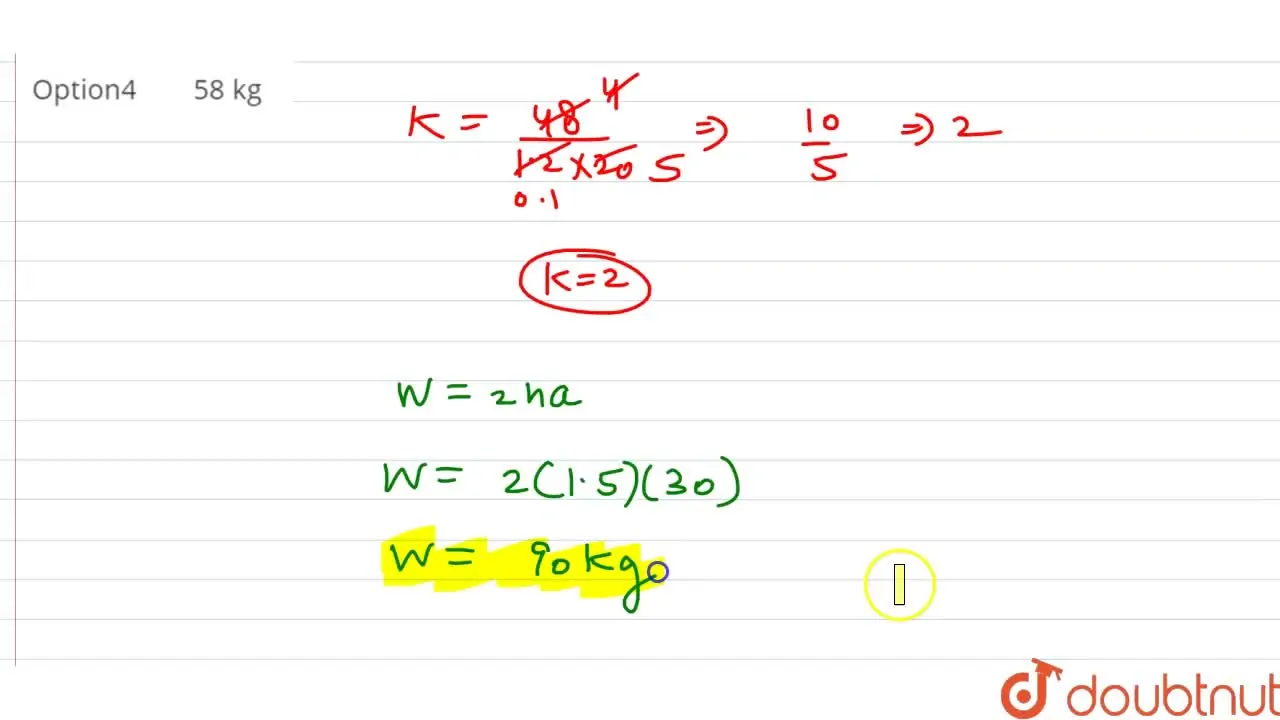 Option4 58 kg
K = 48 4 / 1.2 × 20 5 ⇒ 10/5 ⇒ 2
0.1
K=2
W = 2ha
W = 2(1.5)(30)
W = 90 kg
doubtnut